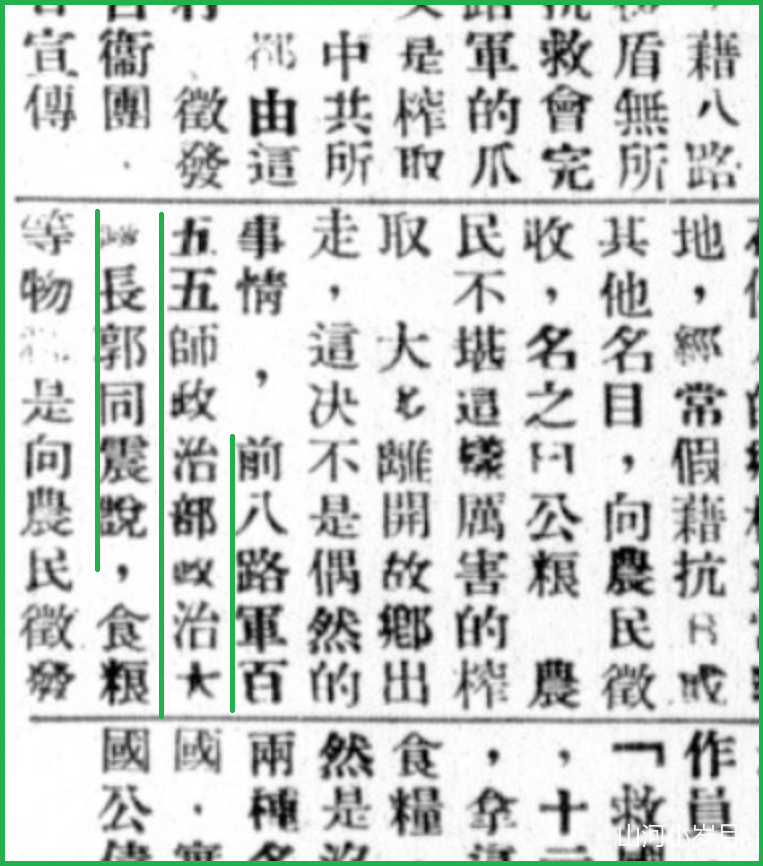 藉八路
盾無所
救會完
軍的爪
是榨取
中共所
都由這
徵發
衞團．
宣傳
地，經常假藉抗日或
其他名目，向農民徵
收，名之曰公粮 農
民不堪這樣厲害的榨
取 大 離開故鄉出
走，這决不是偶然的
事情，前八路軍百
五五師政治部政治大
長郭同震說，食粮
等物 是向農民徵發
作員
「救
，十
，拿
食糧
然是
兩種
國．
國公
山河小岁月